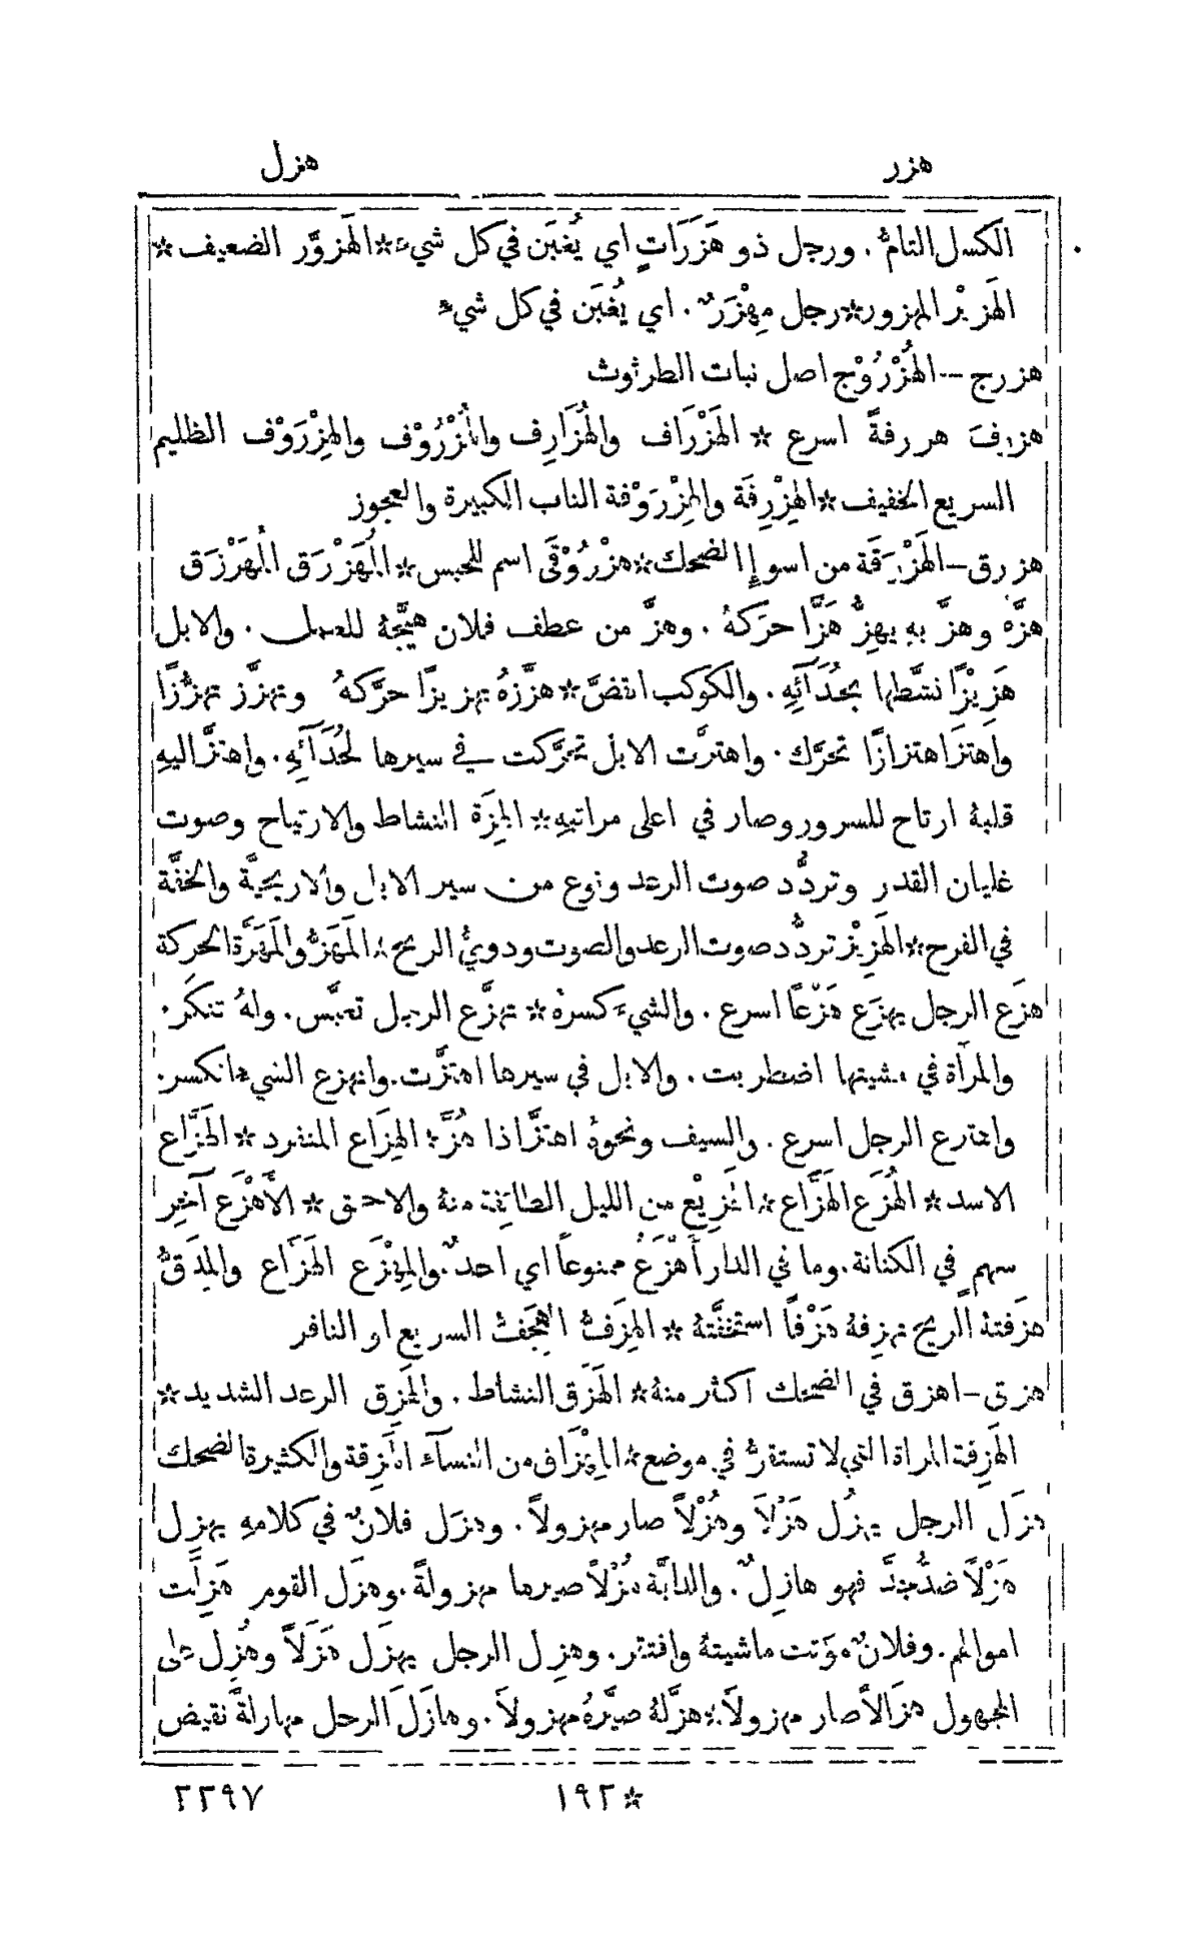 هزر
هزل
الكسل التامُّ . ورجل ذو هَزَرَاتٍ اي يُغبَن في كل شيءٍ * الهَزوَّر الضعيف *
الهَزِبْر المهزور * رجل مِهْزَرٌ . اي يُغبَن في كل شيءٍ
هزرج — الهُزْرُوْج اصل نبات الطرثوث
هزرف هزرفةً اسرع * الهَزْرَاف والهُزَارِف والهُزْرُوْف والهِزْرَوْف الظليم
السريع الخفيف * الهِزْرِفَة والهِزْرَوْفة الناب الكبيرة والعجوز
هزرق — الهَزْرَقَة من اسوإِ الضحك * هزْرُوْقَى اسم للحبس * المُهَزْرَق المُهَرْزَق
هزَّهُ وهزَّ بهِ يهزُّ هَزًّا حرَكهُ . وهزَّ من عطف فلان هيَّجهُ للعمل . والابل
هَزِيْزًا نشَّطها بحُدَآئِهِ . والكوكب انقضَّ * هزَّزهُ تهزيزًا حرَّكهُ وتهزَّز تهزُّزًا
واهتزَّ اهتزازًا تحرَّك . واهتزَّت الابل تحرَّكت في سيرها لحُدَآئِهِ . واهتزَّ اليهِ
قلبهُ ارتاح للسرور وصار في اعلى مراتبهِ * الهِزَة النشاط والارتياح وصوت
غليان القدر وتردُّد صوت الرعد ونوع من سير الابل والاريحيَّة والخفَّة
في الفرح * الهَزِيْز تردُّد صوت الرعد والصوت ودويُّ الريح * المَهَزُّ والمَهَزَّة الحركة
هزَع الرجل يهزَع هَزْعًا اسرع . والشيءَ كسرهُ * تهزَّع الرجل تعبَّس . ولهُ تنكَر .
والمرأَة في مشيتها اضطربت . والابل في سيرها اهتزَّت . وانهزع الشيءُ انكسر .
واهتزع الرجل اسرع . والسيف ونحوهُ اهتزَّ اذا هُزَّ * الهِزَاع المنفرد * الهَزَّاع
الاسد * الهُزَع الهَزَّاع * الهَزِيْع من الليل الطائفة منهُ والاحمق * الأَهْزَع آخِر
سهمٍ في الكنانة . وما في الدار أَهْزَعُ ممنوعاً اي احدٌ . والمِهْزَع الهَزَّاع والمِدَقُّ
هزَفتهُ الريح تهزِفهُ هَزْفًا استخفَّتهُ * الهِزَفُّ الهِجَفُّ السريع او النافر
هزق — اهزق في الضحك اكثر منهُ * الهَزَق النشاط . والهَزِق الرعد الشديد *
الهَزِقة المراة التي لا تستقرُّ في موضع * المِهْزَاق من النسآء الهَزِقة والكثيرة الضحك
هزَل الرجل يهزُل هَزْلاً وهُزْلاً صار مهزولاً . وهزَل فلانٌ في كلامهِ يهزِل
هَزْلاً ضدُّ جدَّ فهو هازِلٌ . والدابَّة هُزْلاً صيرها مهزولةً . وهزَل القوم هَزِلَت
اموالهم . وفلانٌ موّتت ماشيتهُ وافتقر . وهزِل الرجل يهزَل هَزَلاً وهُزِل على
المجهول هزَالاً صار مهزولاً * هزَّلهُ صيَّرهُ مهزولاً . وهازَلَ الرجل مهازلةً نقيض
*١٩٢
٢٢٩٧